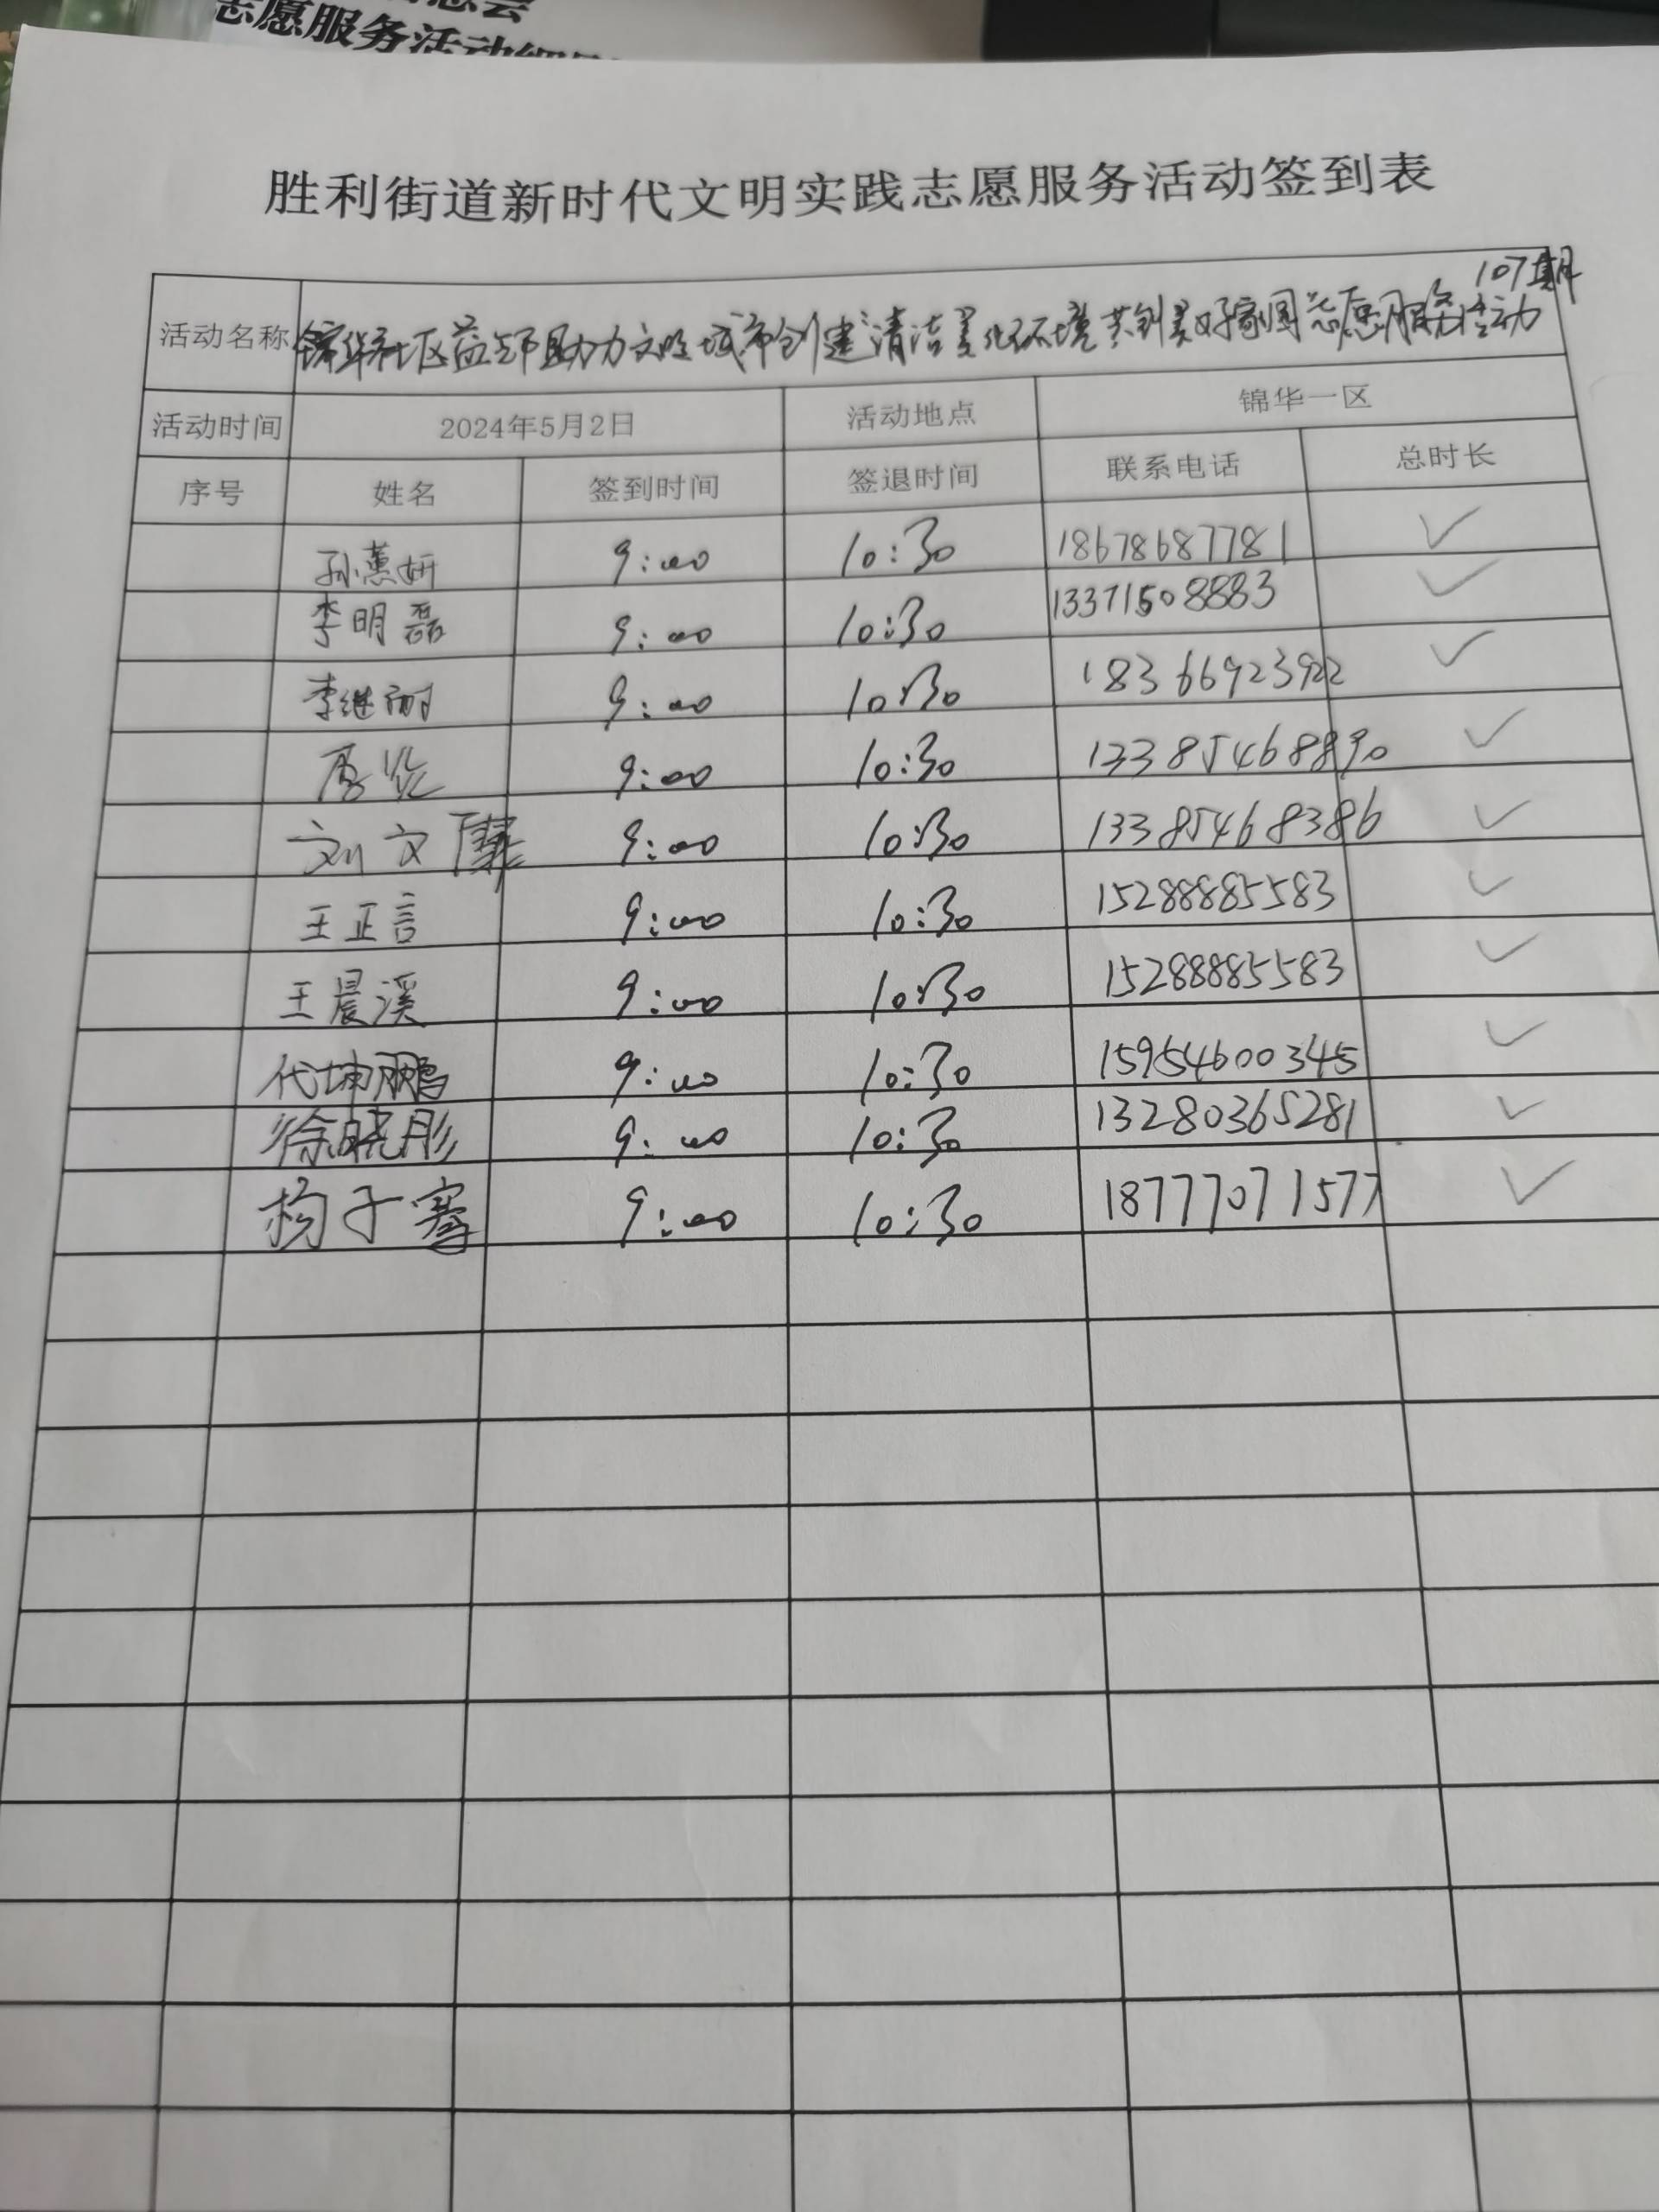 志愿服务活动细则
胜利街道新时代文明实践志愿服务活动签到表
107期
活动名称 锦华社区益师助力文明城市创建"清洁美化环境共创美好家园志愿服务活动
活动时间 2024年5月2日 活动地点 锦华一区
序号 姓名 签到时间 签退时间 联系电话 总时长
孙蕙妍 9:00 10:30 18678687781 ✓
李明磊 9:00 10:30 13371508883 ✓
李继 9:00 10:30 18366923922 ✓
9:00 10:30 13385468890 ✓
刘文 9:00 10:30 13385468386 ✓
王正言 9:00 10:30 15288885583 ✓
王晨溪 9:00 10:30 15288885583 ✓
代坤鹏 9:00 10:30 15954600345 ✓
徐晓彤 9:00 10:30 13280365281 ✓
杨子骞 9:00 10:30 18777071577 ✓